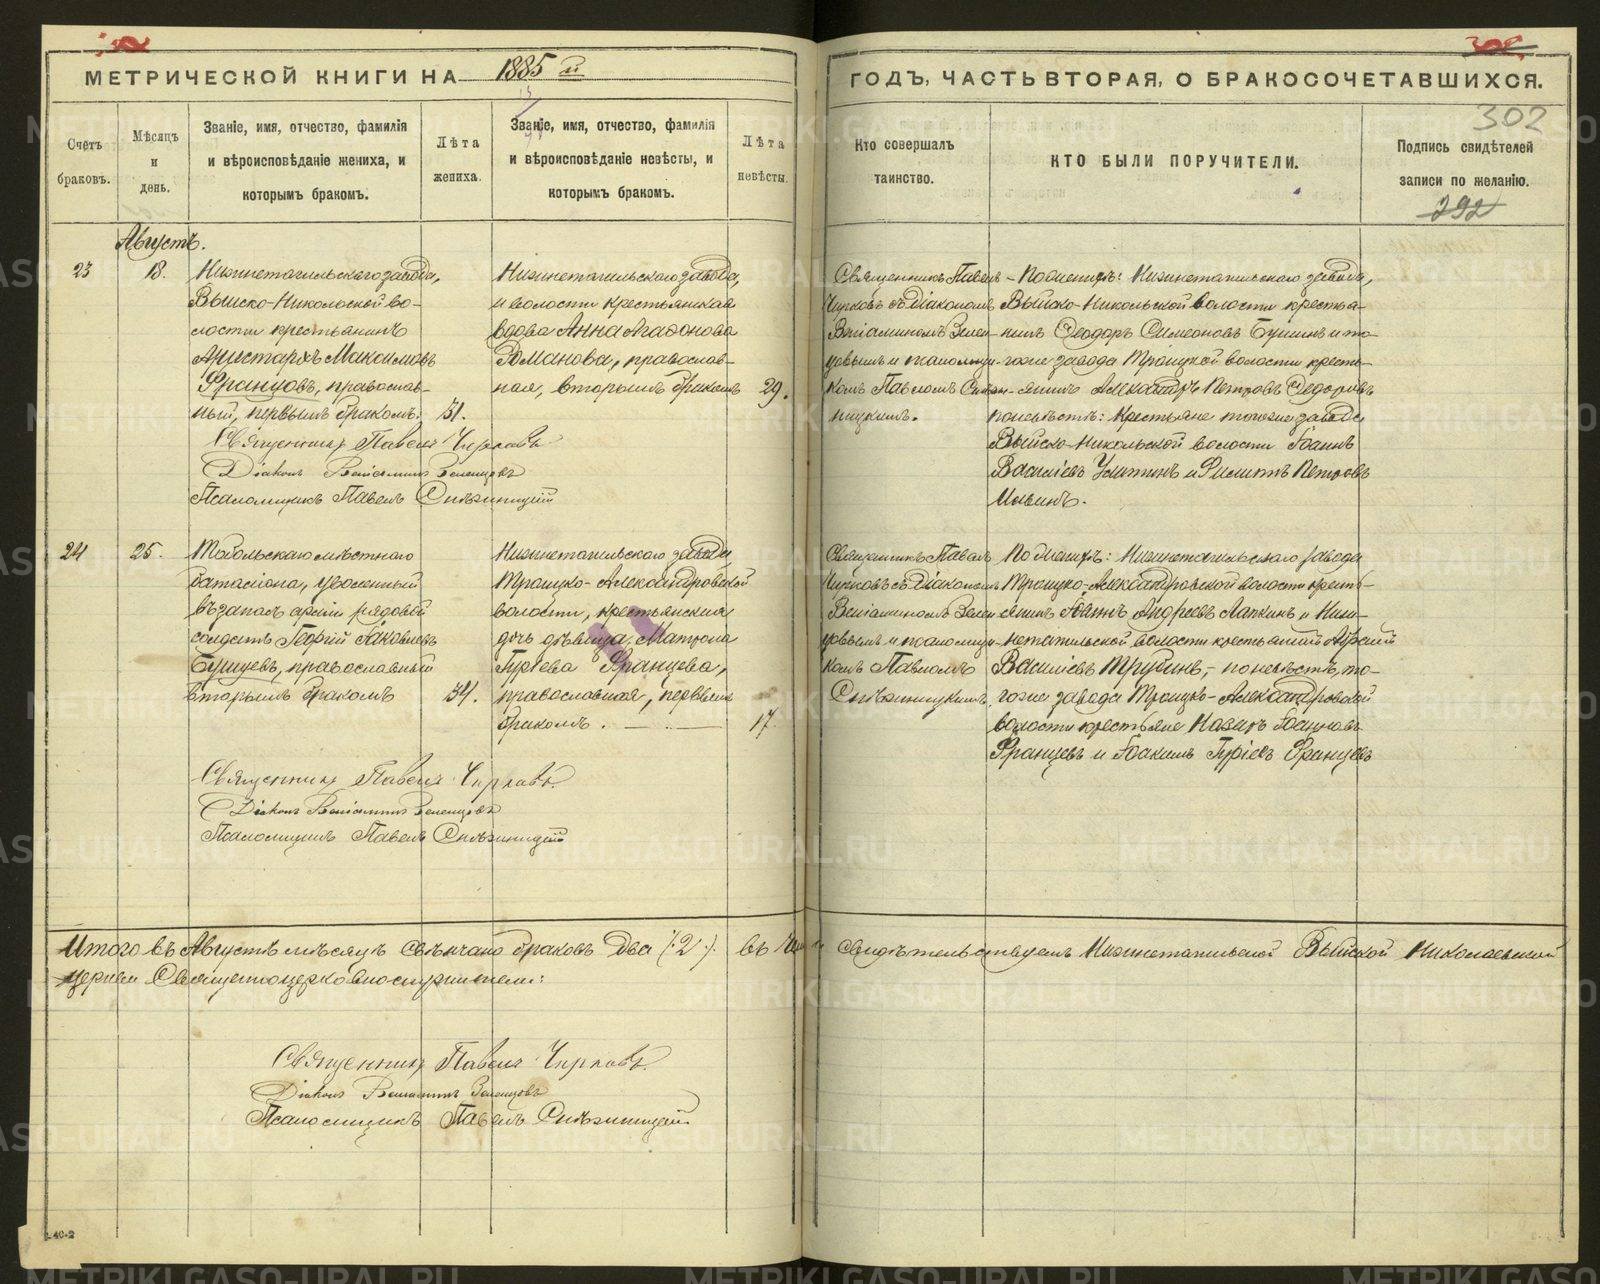 МЕТРИЧЕСКОЙ КНИГИ НА 1885 й
ГОДЪ, ЧАСТЬ ВТОРАЯ, О БРАКОСОЧЕТАВШИХСЯ.
302
Счетъ браковъ.
Мѣсяцъ и день.
Званіе, имя, отчество, фамилія и вѣроисповѣданіе жениха, и которымъ бракомъ.
Лѣта жениха.
Званіе, имя, отчество, фамилія и вѣроисповѣданіе невѣсты, и которымъ бракомъ.
Лѣта невѣсты.
Кто совершалъ таинство.
КТО БЫЛИ ПОРУЧИТЕЛИ.
Подпись свидѣтелей записи по желанію.
292
Августъ.
23
18.
Нижнетагильскаго завода,
Выйско-Никольской во-
лости крестьянинъ
Аристархъ Максимовъ
Францовъ, православ-
ный, первымъ бракомъ.
31.
Нижнетагильскаго завода,
и волости крестьянская
вдова Анна Агафонова
Романова, православ-
ная, вторымъ бракомъ
29.
Священникъ Павелъ
Чирковъ съ діакономъ
Веніаминомъ Зелен-
цовымъ и псаломщи-
комъ Павломъ Снѣж-
ницкимъ.
По женихѣ: Нижнетагильскаго завода,
Выйско-Никольской волости кресть-
нинъ Ѳеодоръ Симеоновъ Бушинъ и то-
гоже завода Троицкой волости кресть-
янинъ Александръ Петровъ Ѳедоровъ
по невѣстѣ: крестьяне тогоже завода
Выйско-Никольской волости Іоаннъ
Василіевъ Улитинъ и Филиппъ Петровъ
Ильинъ.
Священникъ Павелъ Чирковъ
Діаконъ Веніаминъ Зеленцовъ
Псаломщикъ Павелъ Снѣжницкій
24
25.
Тобольскаго мѣстнаго
баталіона, уволенный
въ запасъ арміи рядовой
солдатъ Георгій Іаковлевъ
Бушуевъ, православный
вторымъ бракомъ
34.
Нижнетагильскаго завода
Троицко-Александровской
волости, крестьянская
дочь дѣвица, Матрона
Гуріева Францева,
православная, первымъ
бракомъ.
17.
Священникъ Павелъ
Чирковъ съ діакономъ
Веніаминомъ Зелен-
цовымъ и псаломщи-
комъ Павломъ
Снѣжницкимъ.
По женихѣ: Нижнетагильскаго завода
Троицко-Александровской волости кресть-
янинъ Іоаннъ Андреевъ Лапкинъ и Ниж-
нетагильской волости крестьянинъ
Василіевъ Трубинъ, - по невѣстѣ, то-
гоже завода Троицко-Александровской
волости крестьяне Назаръ Іоанновъ
Францевъ и Іоакимъ Гуріевъ Францевъ
Священникъ Павелъ Чирковъ.
Діаконъ Веніаминъ Зеленцовъ
Псаломщикъ Павелъ Снѣжницкій
Итого въ Августѣ мѣсяцѣ свѣнчано браковъ два (:2:). въ чемъ свидѣтельствуемъ Нижнетагильской Выйской Николаевской
церкви Священноцерковнослужители:
Священникъ Павелъ Чирковъ.
Діаконъ Веніаминъ Зеленцовъ
Псаломщикъ Павелъ Снѣжницкій
METRIKI.GASO-URAL.RU